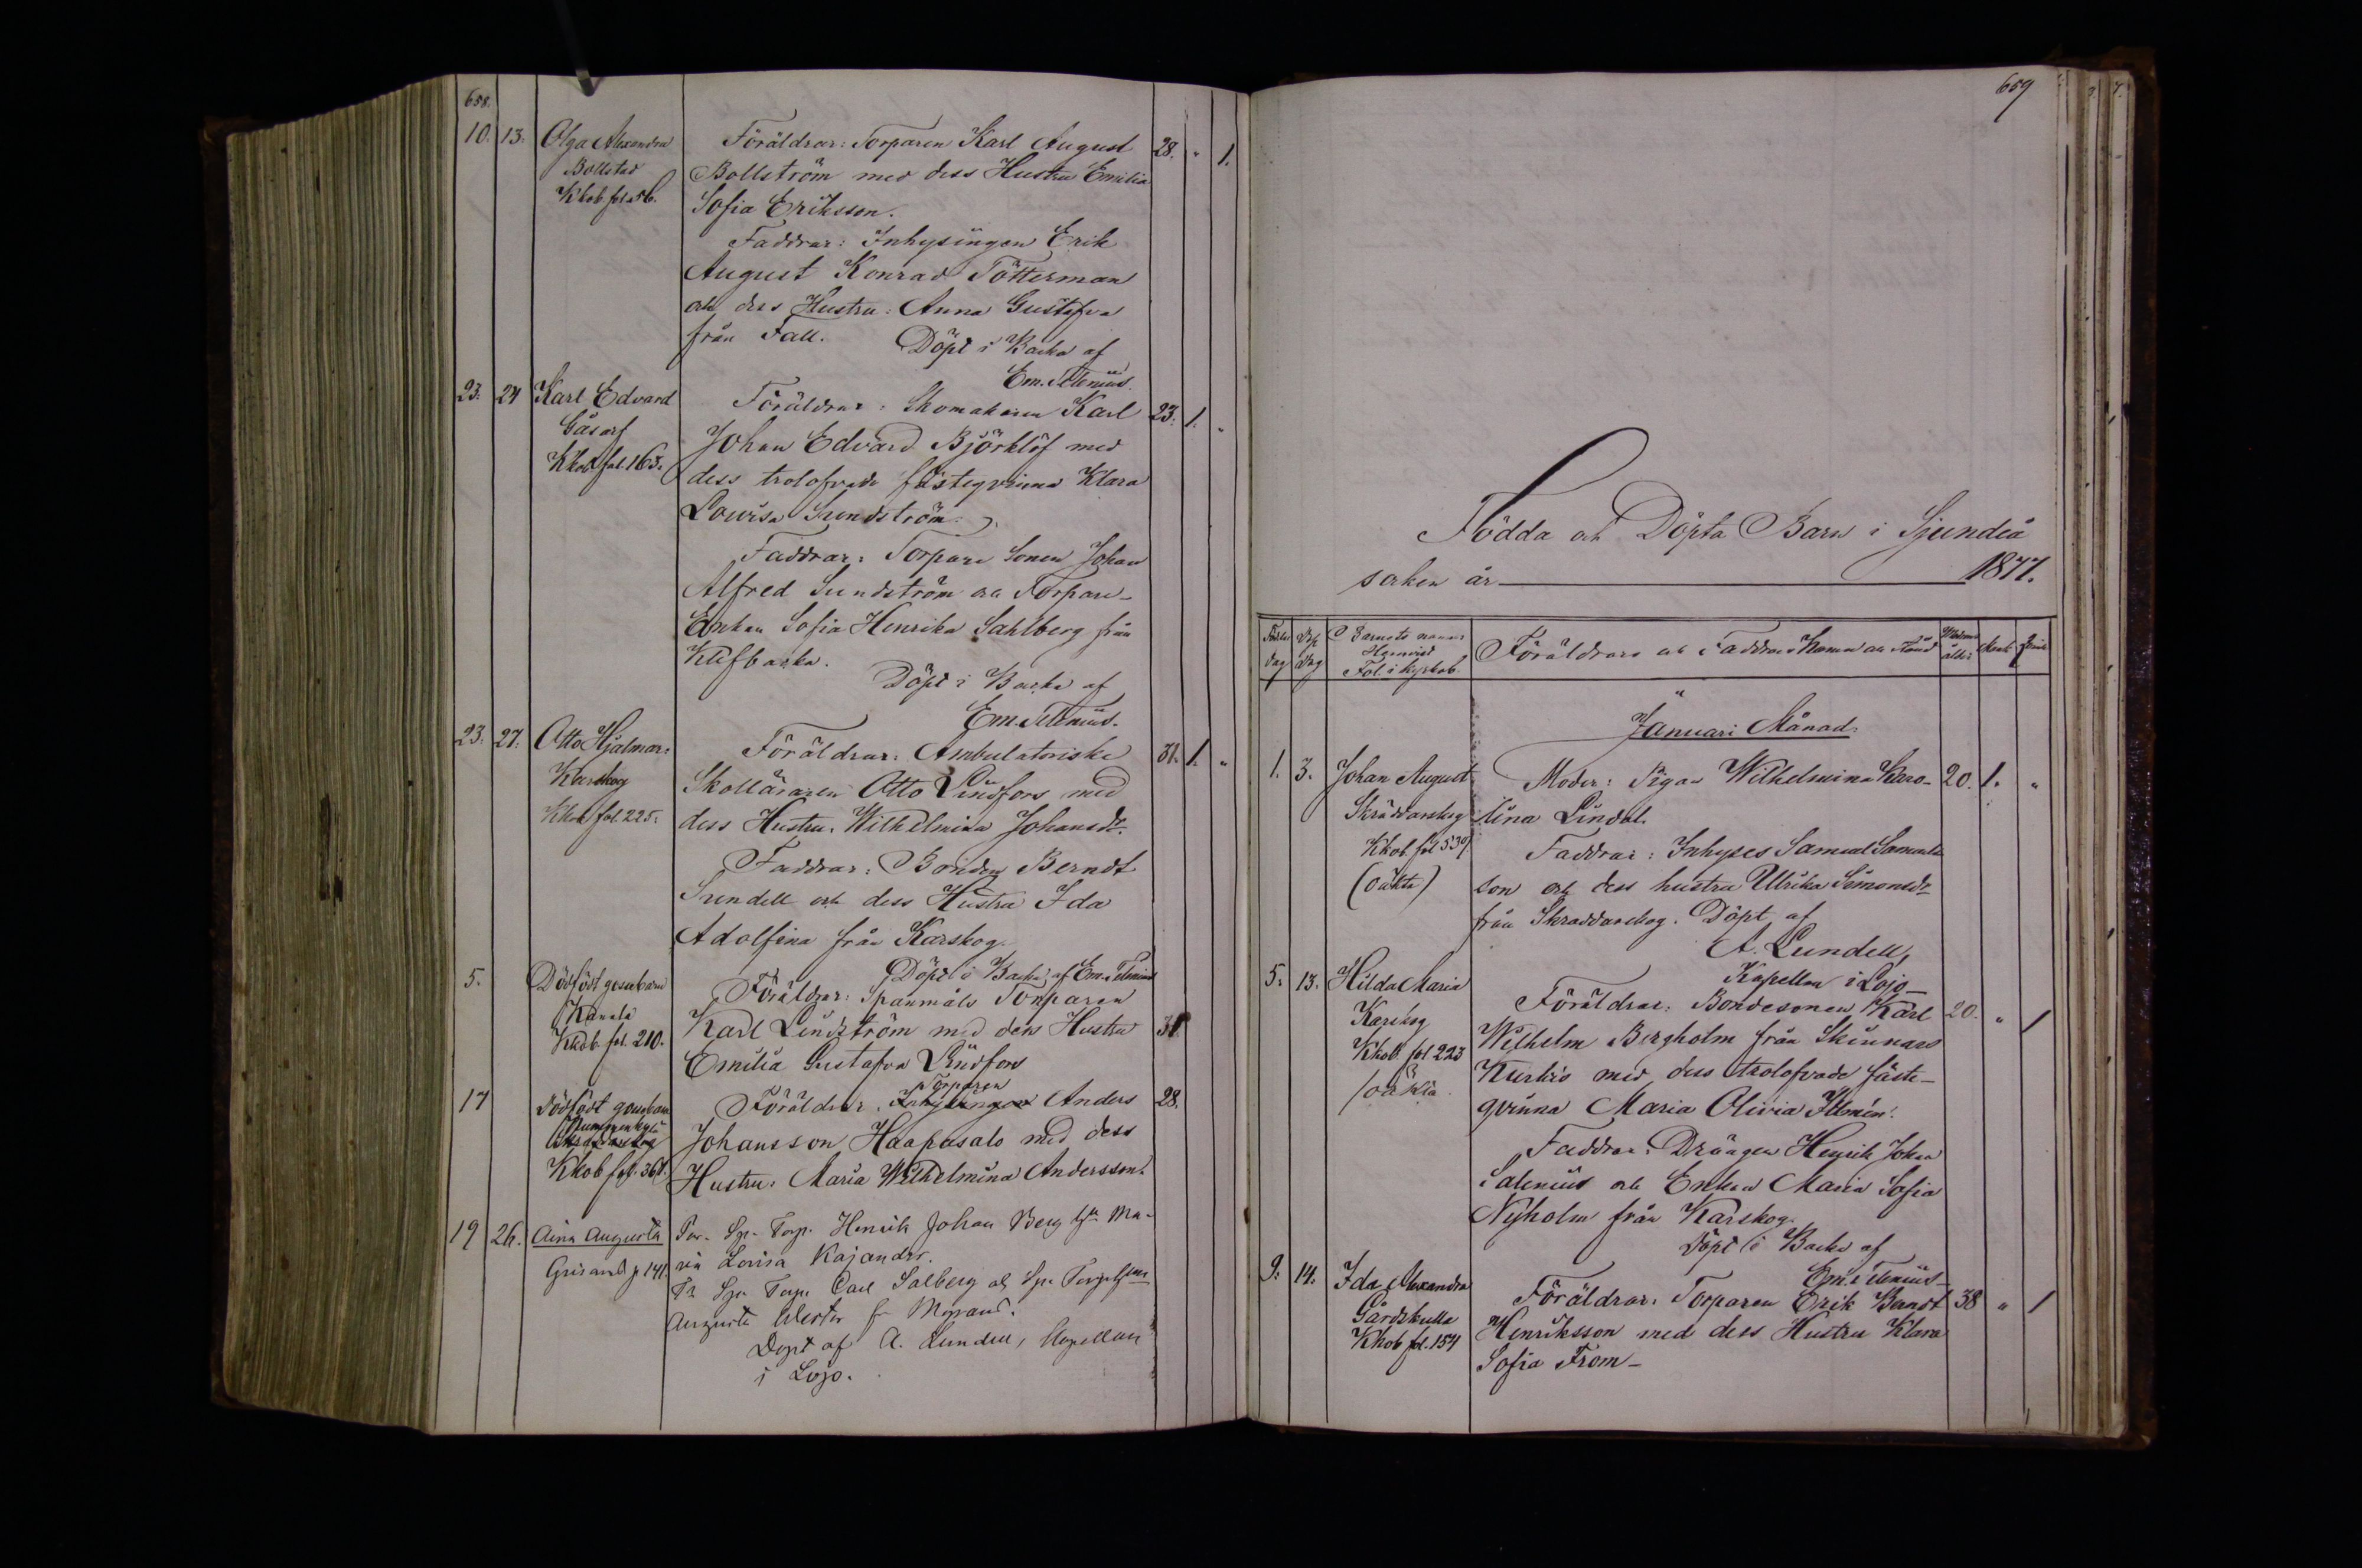 658.
10. 13. Olga Alexandra Föräldrar: Torparen Karl August 28. " 1.
Bollstad Bollström med dess Hustru Emilia
Kkob fol. 56. Sofia Eriksson.
Faddrar: Inhysingen Erik
August Konrad Tötterman
och dess Hustru: Anna Gustafva
från Fall. Döpt i Backa af
Em. Telenius.
23. 24 Karl Edvard Föräldrar: Skomakaren Karl 23. 1. "
Gåsarf Johan Edvard Björklöf med
Kkob fol. 163. dess trolofvade fästeqvinna Klara
Lovisa Sundström.
Faddrar: Torpare Sonen Johan
Alfred Sundström och Torpare-
Enkan Sofia Henrika Sahlberg från
Klifbacka.
Döpt i Backa af
Em. Telenius.
23. 27. Otto Hjalmar: Föräldrar: Ambulatoriske 31. 1. "
Karskog Skolläraren Otto Lindfors med
Kkob fol. 225. dess Hustru: Wilhelmina Johansdr.
Faddrar: Bonden Berndt
Sundell och dess Hustru Ida
Adolfina från Karskog.
Döpt i Backa af Em. Telenius
5. Dödfödt gossebarn Föräldrar: Spanmåls Torparen
Kanala Karl Lindström med dess Hustru 31.
Kkob. fol. 210. Emilia Gustafva Lindfors
Torparen
17 Dödfödt gossebarn Föräldrar: Inhysingen Anders 28.
Nummenkylä Johansson Haapasalo med dess
Skräddarskog
Kkob fol. 361. Hustru: Maria Wilhelmina Andersson.
19 26. Aina Augusta Par. Spr. Torp. Henrik Johan Berg h Ma-
Grisans p 141. ria Lovisa Kajander.
Carl Salberg och
Augusta Wester
Döpt af A. Lundell, Kapellan
i Lojo.
659
Födda och Döpta Barn i Sjundeå
socken år 1877.
Födelse Döp Barnets namn Föräldrars och Faddrars Namn och Stånd Moderns Mank Qvink
dag dag Hemvist ålder
Fol. i kyrkob.
Januari Månad.
1. 3. Johan August Moder: Pigan Wilhelmina Karo- 20. 1. "
Skräddarskog lina Lindal.
Kkob. fol 539 Faddrar: Inhyses Samuel Samuels
(oäkta) son och dess hustru Ulrika Simonsdr
från Skraddarskog. Döpt af
A. Lundell,
Kapellan i Lojo
5. 13. Hilda Maria Föräldrar: Bondesonen Karl 20. " 1
Karskog Wilhelm Bergholm från Skinnars
Kkob. fol. 223 Kurkis med dess trolofvade fäste-
/oäkta qvinna Maria Olivia Ilmén.
Faddrar: Drängen Henrik Johan
Salenius och Enkan Maria Sofia
Nyholm från Karskog.
Döpt i Backa af
Em. Telenius
9. 14. Ida Alexandra Föräldrar: Torparen Erik Berndt 38 " 1
Gårdskulla Henriksson med dess Hustru Klara
Kkob fol. 154 Sofia From-